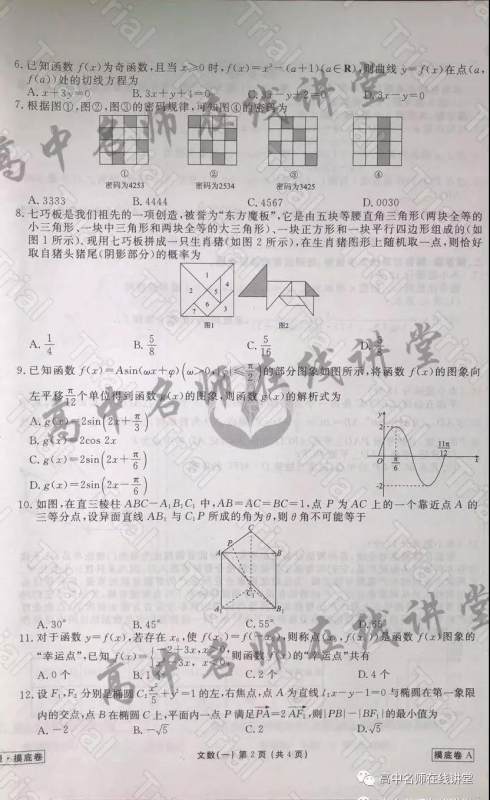 6.已知函数 f(x)为奇函数,且当 x≥0 时,f(x)=x²-(a+1)(a∈R),则曲线 y=f(x)在点(a,
f(a))处的切线方程为
A.x+3y=0 B.3x+y+4=0 D.3x-y=0
7.根据图①,图②,图③的密码规律,可知图④的密码为
① ② ③ ④
密码为4253 密码为2534 密码为3425
A.3333 B.4444 C.4567 D.0030
8.七巧板是我们祖先的一项创造,被誉为“东方魔板”,它是由五块等腰直角三角形(两块全等的
小三角形、一块中三角形和两块全等的大三角形)、一块正方形和一块平行四边形组成的(如
图1所示).现用七巧板拼成一只生肖猪(如图2所示),在生肖猪图形上随机取一点,则恰好
取自猪头猪尾(阴影部分)的概率为
1 2 3 4 5 6 7
图1 图2
A.1/4 B.5/8 C.5/16 D.
9.已知函数 f(x)=Asin(ωx+φ)(ω>0,|φ|≤π/2)的部分图象如图所示,将函数 f(x)的图象向
左平移π/12个单位得到函数g(x)的图象,则函数g(x)的解析式为
A.g(x)=2sin(2x+π/3)
B.g(x)=2cos 2x
C.g(x)=2sin(2x+π/6)
D.g(x)=2sin(2x-π/6)
y 2 O π/6 11π/12 x -2
10.如图,在直三棱柱 ABC-A₁B₁C₁ 中,AB=AC=BC=1,点 P 为 AC 上的一个靠近点 A 的
三等分点,设异面直线 AB₁ 与 C₁P 所成的角为θ,则θ角不可能等于
C P A B C₁ A₁ B₁
A.30° B.45° C.55° D.65°
11.对于函数 y=f(x),若存在 x₀,使 f(x₀)= ,则称点(x₀,f(x₀))是函数 f(x)图象的
“幸运点”,已知f(x)= ,则函数 f(x)的“幸运点”共有
A.0个 B.1 C.2个 D.4个
12.设 F₁,F₂ 分别是椭圆 C:x²/5+y²=1 的左,右焦点,点 A 为直线 l:x-y-1=0 与椭圆在第一象限
内的交点,点 B 在椭圆 C 上,平面内一点 P 满足PA=2AF₁,则|PB|-|BF₁|的最小值为
A.-2 B.-√5 C.2 D.√5
·摸底卷 文数(一) 第2页(共4页) 摸底卷 A
高中名师在线讲堂
高中名师在线讲堂
高中名师在线讲堂
高中名师在线讲堂
Trial